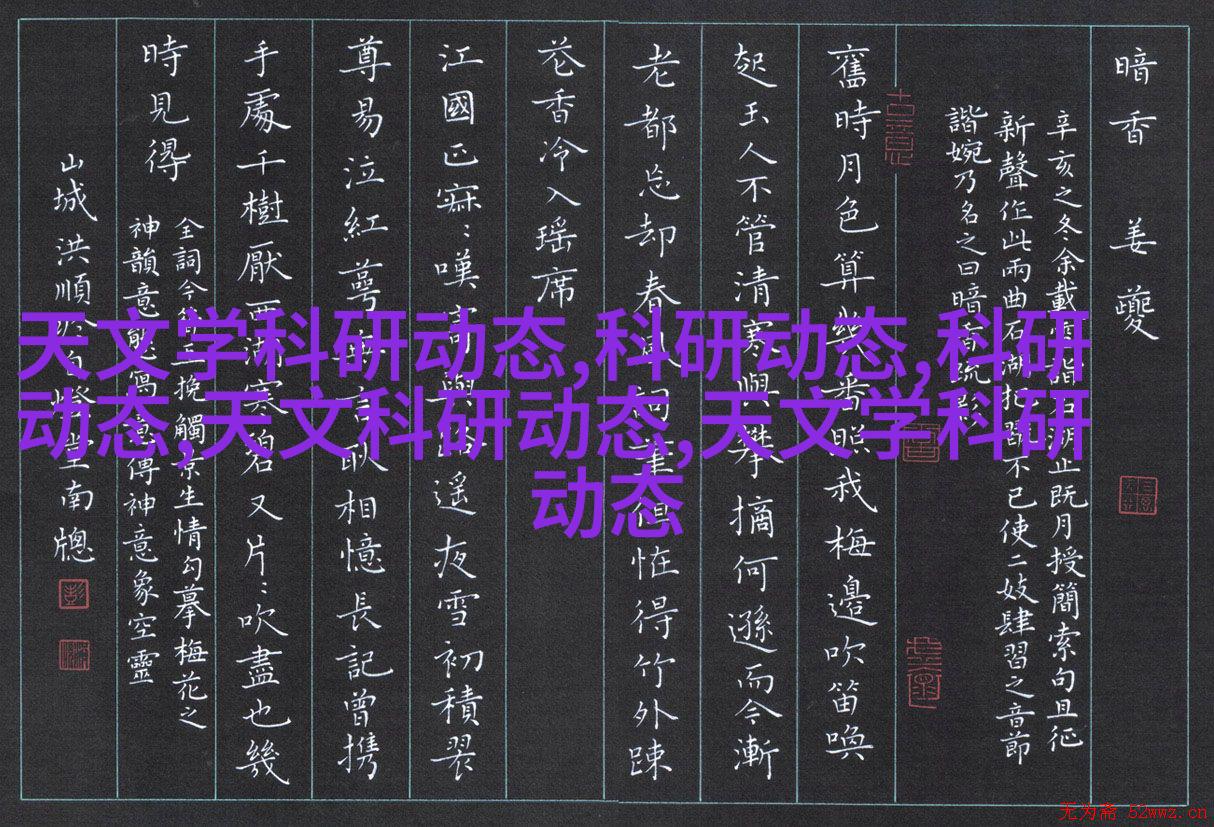 暗香　姜夔
辛亥之冬余載雪詣石湖止既月授簡索句且征
新聲作此兩曲石湖把翫不已使二妓肆習之音節
諧婉乃名之曰暗香疏影
舊時月色算幾番照我梅邊吹笛喚
起玉人不管清寒與攀摘何遜而今漸
老都忘却春風詞筆但怪得竹外踈
花香冷入瑶席
江國正寂：嘆寄與路遥夜雪初積翠
尊易泣紅萼無言耿相憶長記曾携
手處千樹壓西湖寒碧又片：吹盡也幾
時見得
全詞今昔
挽觸景生情勾摹梅花之
神韻意態寫息傳神意象空靈
山城洪順
堂南牕
天文学科研动态,科研动态,科研
动态,天文科研动态,天文学科研
动态
无为斋 52wwz.cn